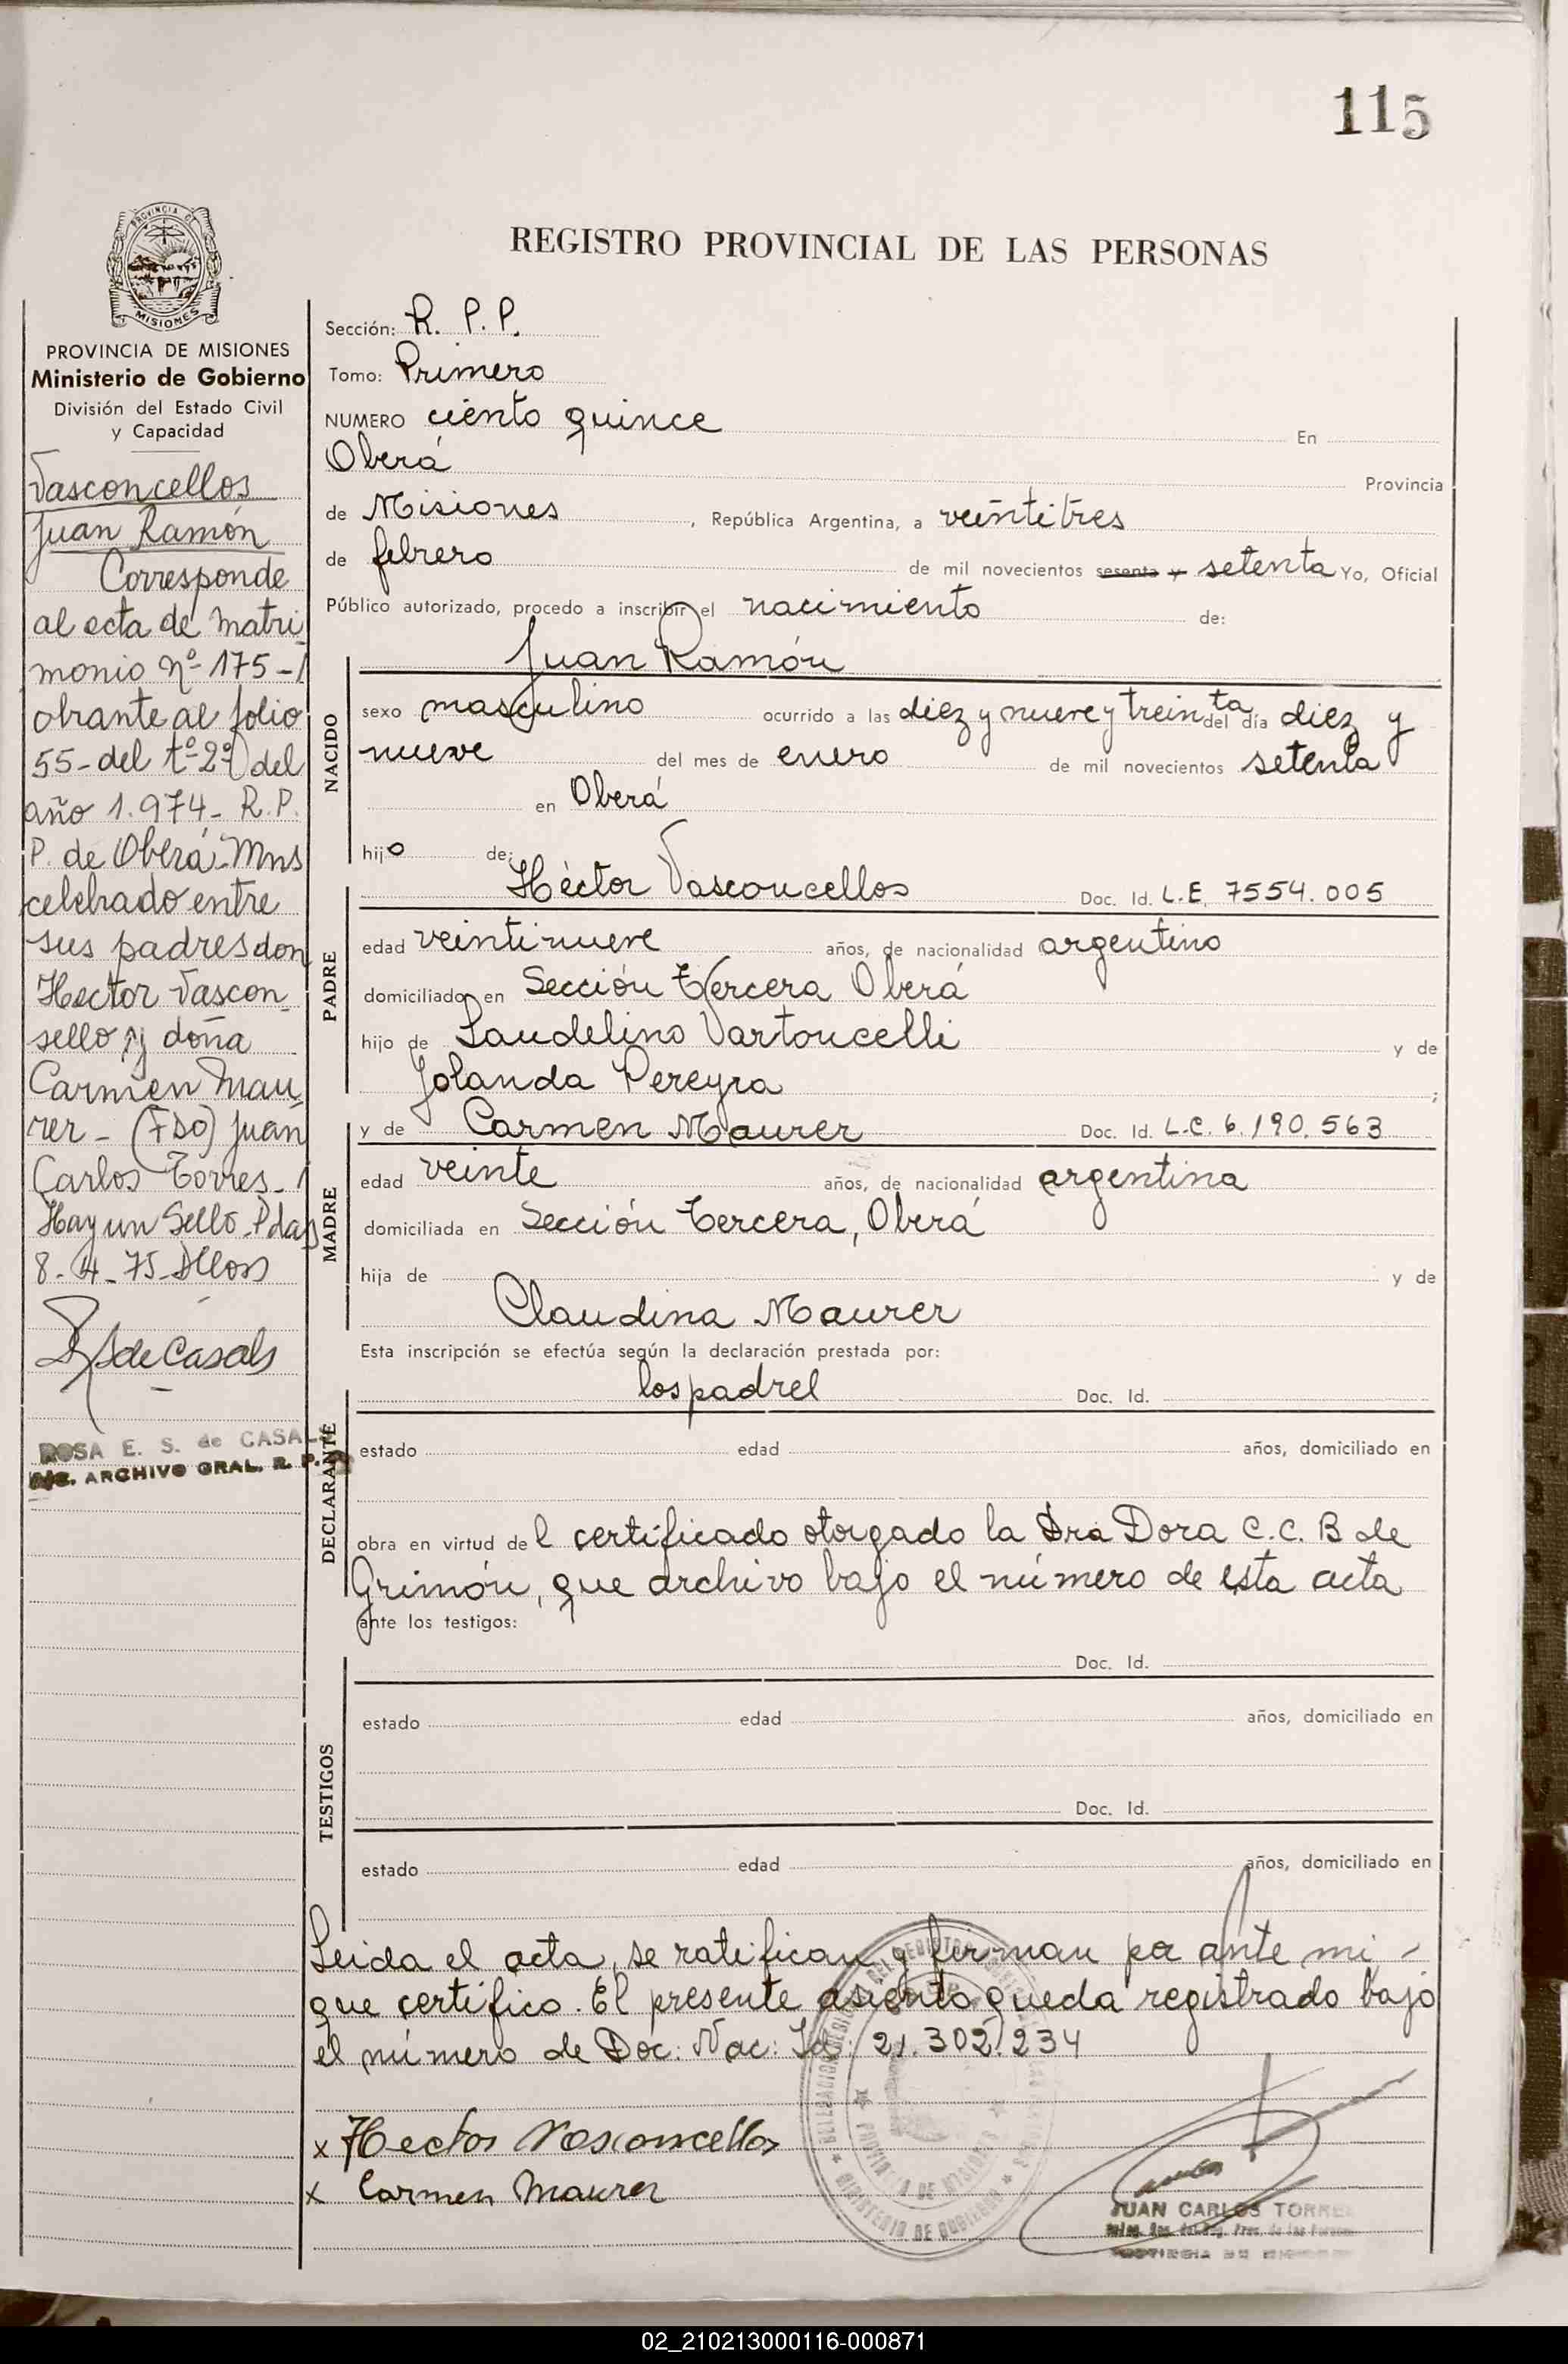 115
REGISTRO PROVINCIAL DE LAS PERSONAS
PROVINCIA DE
MISIONES
PROVINCIA DE MISIONES
Ministerio de Gobierno
División del Estado Civil
y Capacidad
Vasconcellos
Juan Ramón
Corresponde
al acta de matri
monio nº 175-/
obrante al folio
55- del tº 2º del
año 1.974- R.P.
P. de Oberá-Mns
celebrado entre
sus padres don
Hector Vascon
sello y doña
Carmen Mau
rer - (FDO) Juan
Carlos Torres-/
Hay un Sello. Pdas
8-4-75-
de Casals
ROSA E. S. de CASALS
ARCHIVO GRAL. R. P.
Sección: R. P. P.
Tomo: Primero
NUMERO ciento quince En
Oberá Provincia
de Misiones, República Argentina, a veintitres
de febrero de mil novecientos sesenta y setenta Yo, Oficial
Público autorizado, procedo a inscribir el nacimiento de:
Juan Ramón
NACIDO
sexo masculino ocurrido a las diez y nueve y treinta del día diez y
nueve del mes de enero de mil novecientos setenta
en Oberá
hijo de:
Héctor Vasconcellos Doc. Id. L.E. 7554.005
PADRE
edad veintinueve años, de nacionalidad argentino
domiciliado en Sección Tercera Oberá
hijo de Laudelino Vartoucelli y de
Jolanda Pereyra ;
y de Carmen Maurer Doc. Id. L.C. 6.190.563
MADRE
edad veinte años, de nacionalidad argentina
domiciliada en Sección Tercera, Oberá
hija de y de
Claudina Maurer
Esta inscripción se efectúa según la declaración prestada por:
los padrel Doc. Id.
DECLARANTE
estado edad años, domiciliado en
obra en virtud del certificado otorgado la Dra Dora C.C. B de
Grimón, que archivo bajo el número de esta acta
ante los testigos:
Doc. Id.
TESTIGOS
estado edad años, domiciliado en
Doc. Id.
estado edad años, domiciliado en
Leida el acta, se ratifican y firman por ante mi -
que certifico. El presente asiento queda registrado bajo
el número de Doc: Nac: Id: 21.302.234
x Hector Vasconcellos
x Carmen Maurer
PROVINCIA DE MISIONES
MINISTERIO DE GOBIERNO
JUAN CARLOS TORRES
02_210213000116-000871